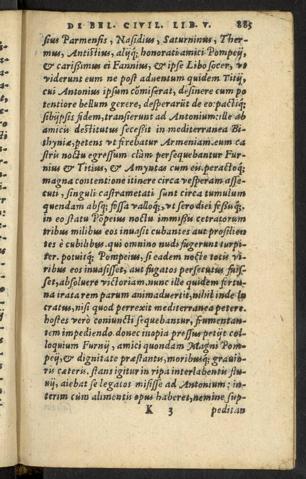 DE BEL. CIVIL. LIB. V. 885
sius Parmensis, Nasidius, Saturninus, Ther-
mus, Antistius, alijq́; honorati amici Pompeij,
& carißimus ei Fannius, & ipse Libo socer, vo
viderunt eum ne post aduentum quidem Titij,
cui Antonius ipsum cõmiserat, desinere cum po
tentiore bellum gerere, desperarũt de eo: pactiq́;
sibijpsis fidem, transierunt ad Antonium: ille ab
amicis destitutus secessit in mediterranea Bi-
thyniæ, petens vt ferebatur Armeniam. eum ca
stris noctu egressum clàm persequebantur Fur-
nius & Titius, & Amyntas cum eis. peractoq́;
magna contentione itinere circa vesperam asse-
cuti, singuli castrametati sunt circa tumulum
quendam absq; fossa valloq́;, vt sero diei feßiq́;,
in eo statu Põpeius noctu immißis cetratorum
tribus milibus eos inuasit cubantes aut prosilien
tes è cubilibus. qui omnino nudi fugerunt turpi
ter. potuitq́; Pompeius, si eadem nocte totis vi-
ribus eos inuasisset, aut fugatos persecutus fuis-
set, absoluere victoriam. nunc ille quidem fortu-
na irata rem parum animaduertit, nihil inde lu
cratus, nisi quod perrexit mediterranea petere.
hostes verò coniuncti sequebantur, frumentan-
tem impediendo. donec inopia pressus petijt col-
loquium Furnij, amici quondam Magni Pom-
peij, & dignitate præstantis, moribusq́; grauio-
ris cæteris. stans igitur in ripa interlabentis flu-
uij, aiebat se legatos misisse ad Antonium: in-
terim cùm alimentis opus haberet, nemine sup-
K 3 peditan